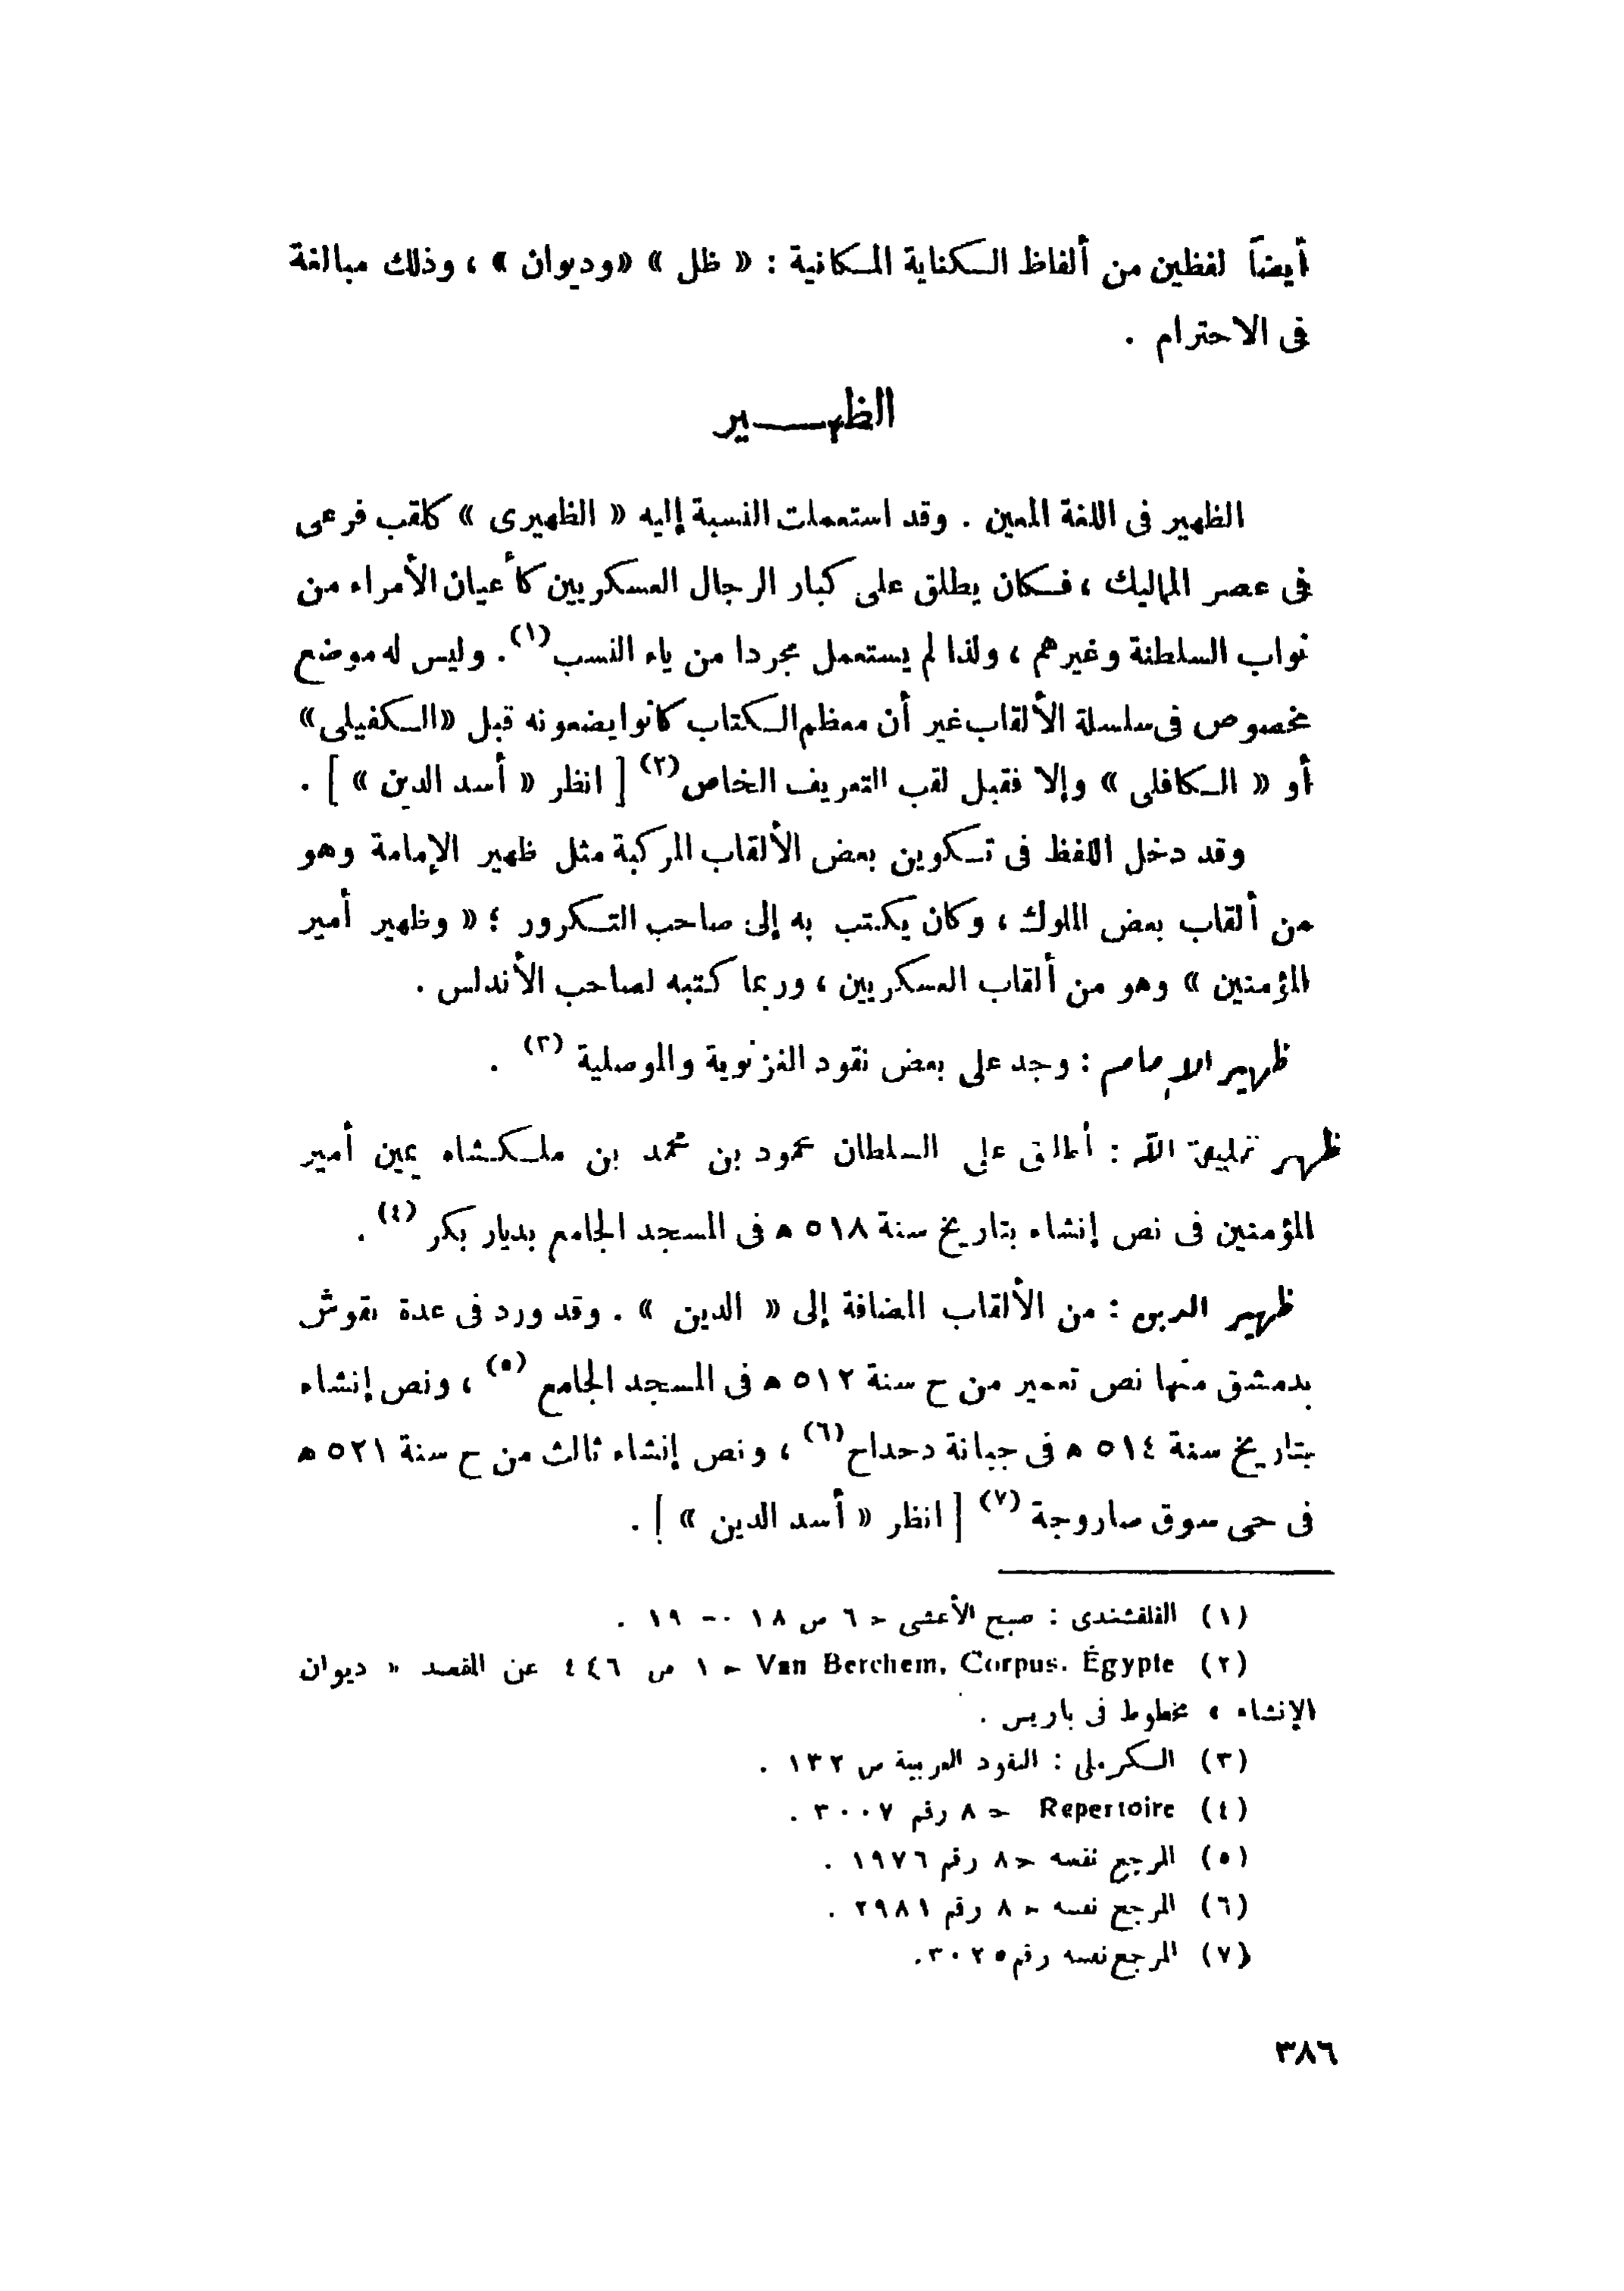 أيضاً لفظين من ألفاظ الكناية المكانية : « ظل » «وديوان » ، وذلك مبالغة
فى الاحترام .
الظهير
الظهير فى اللغة المعين . وقد استعملت النسبة إليه « الظهيرى » كلقب فرعى
فى عصر المماليك ، فكان يطلق على كبار الرجال العسكريين كأعيان الأمراء من
نواب السلطنة وغيرهم ، ولذا لم يستعمل مجردا من ياء النسب (١) . وليس له موضع
مخصوص فى سلسلة الألقاب غير أن معظم الكتاب كانوا يضعونه قبل «الكفيلى»
أو « الكافلى » وإلا فقبل لقب التعريف الخاص (٢) [ انظر « أسد الدين » ] .
وقد دخل اللفظ فى تكوين بعض الألقاب المركبة مثل ظهير الإمامة وهو
من ألقاب بعض الملوك ، وكان يكتب به إلى صاحب التكرور ؛ « وظهير أمير
المؤمنين » وهو من ألقاب العسكريين ، وربما كتبه لصاحب الأندلس .
ظهير الإمام : وجد على بعض نقود الغزنوية والموصلية (٣) .
ظهير خليفة الله : أطلق على السلطان محمود بن محمد بن ملكشاه يمين أمير
المؤمنين فى نص إنشاء بتاريخ سنة ٥١٨ ه فى المسجد الجامع بديار بكر (٤) .
ظهير الدين : من الألقاب المضافة إلى « الدين » . وقد ورد فى عدة نقوش
بدمشق منها نص تعمير من ح سنة ٥١٢ ه فى المسجد الجامع (٥) ، ونص إنشاء
بتاريخ سنة ٥١٤ ه فى جبانة دحداح (٦) ، ونص إنشاء ثالث من ح سنة ٥٢١ ه
فى حى سوق صاروجة (٧) [ انظر « أسد الدين » ] .
(١) القلقشندى : صبح الأعشى ح ٦ ص ١٨ - ١٩ .
(٢) Van Berchem, Corpus. Égypte ح ١ ص ٤٤٦ عن المقصد « ديوان
الإنشاء » مخطوط فى باريس .
(٣) الكرملى : النقود العربية ص ١٣٢ .
(٤) Repertoire ح ٨ رقم ٣٠٠٧ .
(٥) المرجع نفسه ح ٨ رقم ١٩٧٦ .
(٦) المرجع نفسه ح ٨ رقم ٢٩٨١ .
(٧) المرجع نفسه رقم ٣٠٢٥ .
٣٨٦